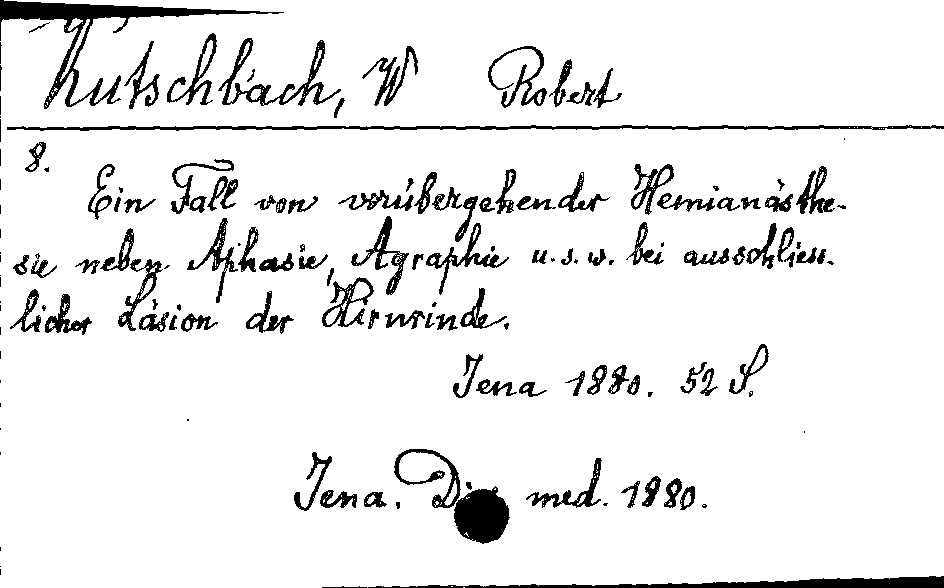 Kutschbach, W Robert
8.
Ein Fall von vorübergehender Hemianästhe-
sie neben Aphasie, Agraphie u.s.w. bei ausschliess-
licher Läsion der Hirnrinde.
Jena 1880. 52 S.
Jena. med. 1880.